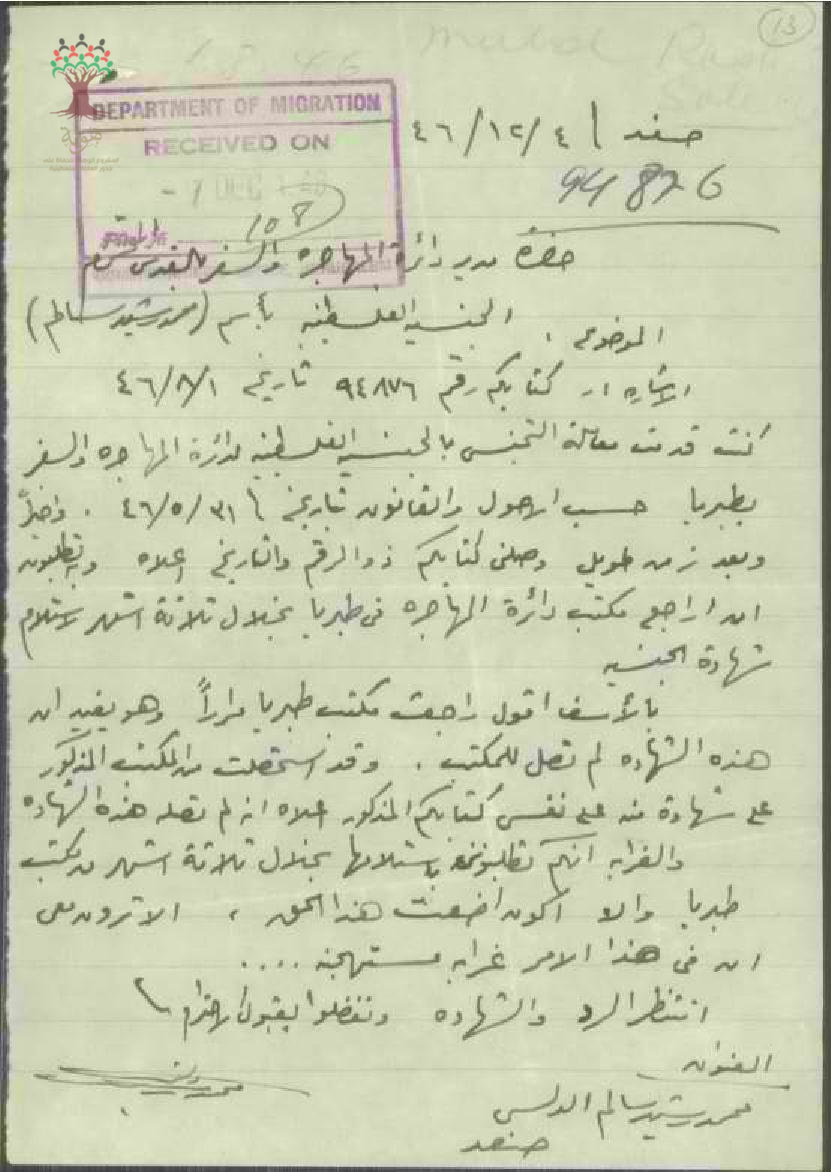 13
DEPARTMENT OF MIGRATION
RECEIVED ON
صفد ٤ / ١٢ / ٤٦
- 7 DEC
94876
108
حضرة مدير دائرة المهاجره والسفر بالقدس
الموضوع : الجنسيه الفلسطينيه بأسم (محمد رشيد سالم)
الاشاره الى كتابكم رقم ٩٤٨٧٦ تاريخ ٤٦/٨/١
كنت قدمت معاملة التجنس بالجنسيه الفلسطينيه لدائرة المهاجره والسفر
بطبريا حسب الاصول والقانون بتاريخ ٤٦/٥/٣١ .
وبعد زمن طويل وصلني كتابكم ذو الرقم والتاريخ اعلاه وتطلبون
ان اراجع مكتب دائرة المهاجره في طبريا بخلال ثلاثة اشهر لاستلام
شهادة الجنسيه
بالأسف اقول راجعت مكتب طبريا مراراً وهو يفيد ان
هذه الشهاده لم تصل للمكتب . وقد استحصلت من المكتب المذكور
على شهادة منه على نفس كتابكم المذكور اعلاه انه لم تصله هذه الشهاده
والغرابه انكم تطلبون باستلامها بخلال ثلاثة اشهر من مكتب
طبريا والا اكون اضعت هذا الحق ، الا ترون معي
ان في هذا الامر غرابه مستهجنه ....
انتظر الرد والشهاده وتفضلوا بقبول الاحترام
العنوان
محمد رشيد سالم
صفد